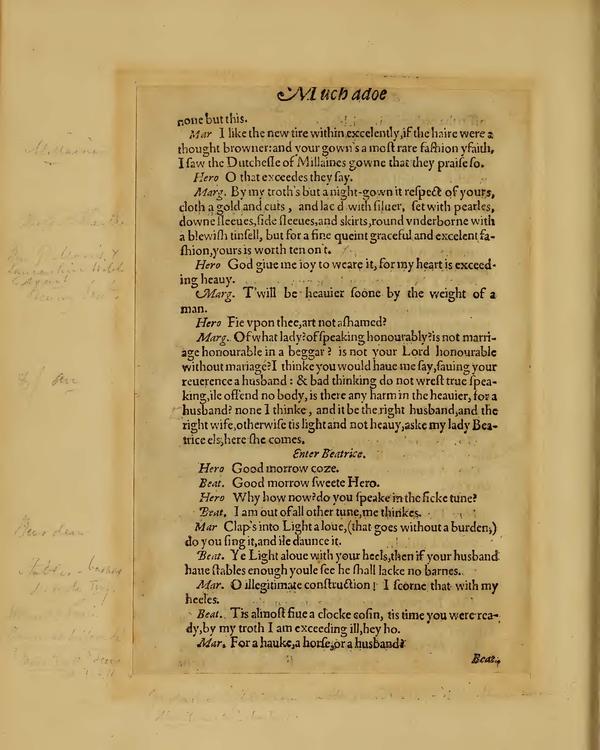 Much adoe
none but this.
Mar I like the new tire within excelently, if the haire were a
thought browner: and your gown's a most rare fashion yfaith,
I saw the Dutchesse of Millaines gowne that they praise so.
Hero O that exceedes they say.
Marg. By my troth's but a night-gown it respect of yours,
cloth a gold and cuts, and lac'd with siluer, set with pearles,
downe sleeues, side sleeues, and skirts, round vnderborne with
a blewish tinsell, but for a fine queint graceful and excelent fa-
shion, yours is worth ten on't.
Hero God giue me ioy to weare it, for my heart is exceed-
ing heauy.
Marg. T'will be heauier soone by the weight of a
man.
Hero Fie vpon thee, art not ashamed?
Marg. Of what lady? of speaking honourably? is not marri-
age honourable in a beggar? is not your Lord honourable
without mariage? I thinke you would haue me say, sauing your
reuerence a husband: & bad thinking do not wrest true spea-
king, ile offend no body, is there any harm in the heauier, for a
husband? none I thinke, and it be the right husband, and the
right wife, otherwise tis light and not heauy, aske my lady Bea-
trice els, here she comes.
Enter Beatrice.
Hero Good morrow coze.
Beat. Good morrow sweete Hero.
Hero Why how now? do you speake in the sicke tune?
Beat. I am out of all other tune, me thinkes.
Mar Clap's into Light a loue, (that goes without a burden,)
do you sing it, and ile daunce it.
Beat. Ye Light aloue with your heels, then if your husband
haue stables enough youle see he shall lacke no barnes.
Mar. O illegitimate construction! I scorne that with my
heeles.
Beat. Tis almost fiue a clocke cosin, tis time you were rea-
dy, by my troth I am exceeding ill, hey ho.
Mar. For a hauke, a horse, or a husband?
Beat.